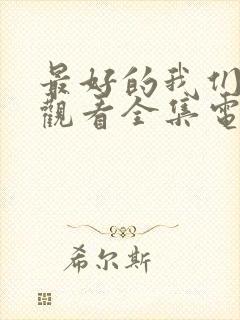 最好的我们
觀看全集電
希尔斯